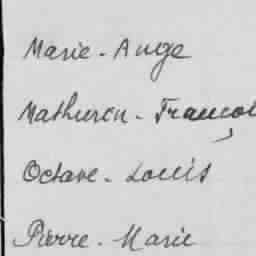 Marie - Ange
Mathurin - Françoi
Octave - Louis
Pierre - Marie